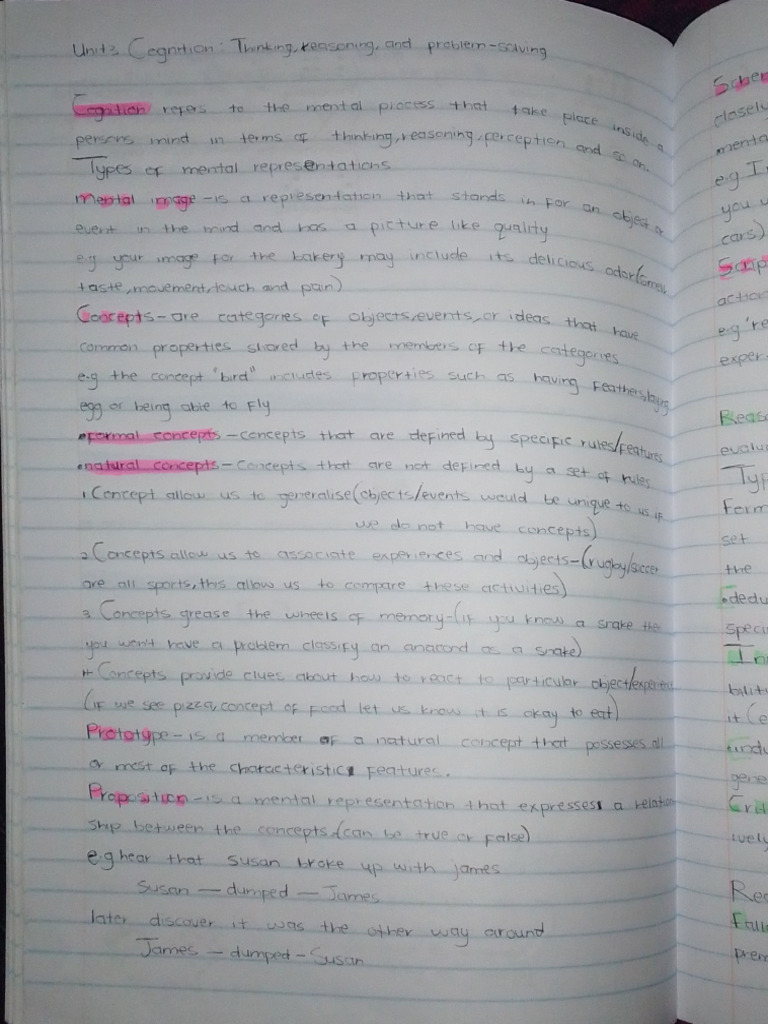 Unit 3 Cognition: Thinking, reasoning, and problem-solving
Cognition refers to the mental process that take place inside a
persons mind in terms of thinking, reasoning, perception and so on.
Types of mental representations
Mental image - is a representation that stands in for an object or
event in the mind and has a picture like quality
eg your image for the bakery may include its delicious odor(smell,
taste, movement, touch and pain)
Concepts - are categories of objects, events, or ideas that have
common properties shared by the members of the categories
e.g the concept "bird" includes properties such as having feathers, laying
egg or being able to fly
•formal concepts - concepts that are defined by specific rules/features
•natural concepts - concepts that are not defined by a set of rules
1 Concept allow us to generalise (objects/events would be unique to us if
we do not have concepts)
2 Concepts allow us to associate experiences and objects - (rugby/soccer
are all sports, this allow us to compare these activities)
3 Concepts grease the wheels of memory - (if you know a snake the
you won't have a problem classify an anacond as a snake)
4 Concepts provide clues about how to react to particular object/experience
(if we see pizza, concept of food let us know it is okay to eat)
Prototype - is a member of a natural concept that possesses all
or most of the characteristic features.
Proposition - is a mental representation that expresses a relation
ship between the concepts (can be true or false)
e.g hear that Susan broke up with james
Susan — dumped — James
later discover it was the other way around
James — dumped - Susan
closely
menta
e.g I
you
cars)
Scrip
action
e.g 're
exper
Reaso
evalu
Typ
Form
set
the
•dedu
speci
In
bility
it (e
indu
gene
Crit
ively
Rea
Falla
prem